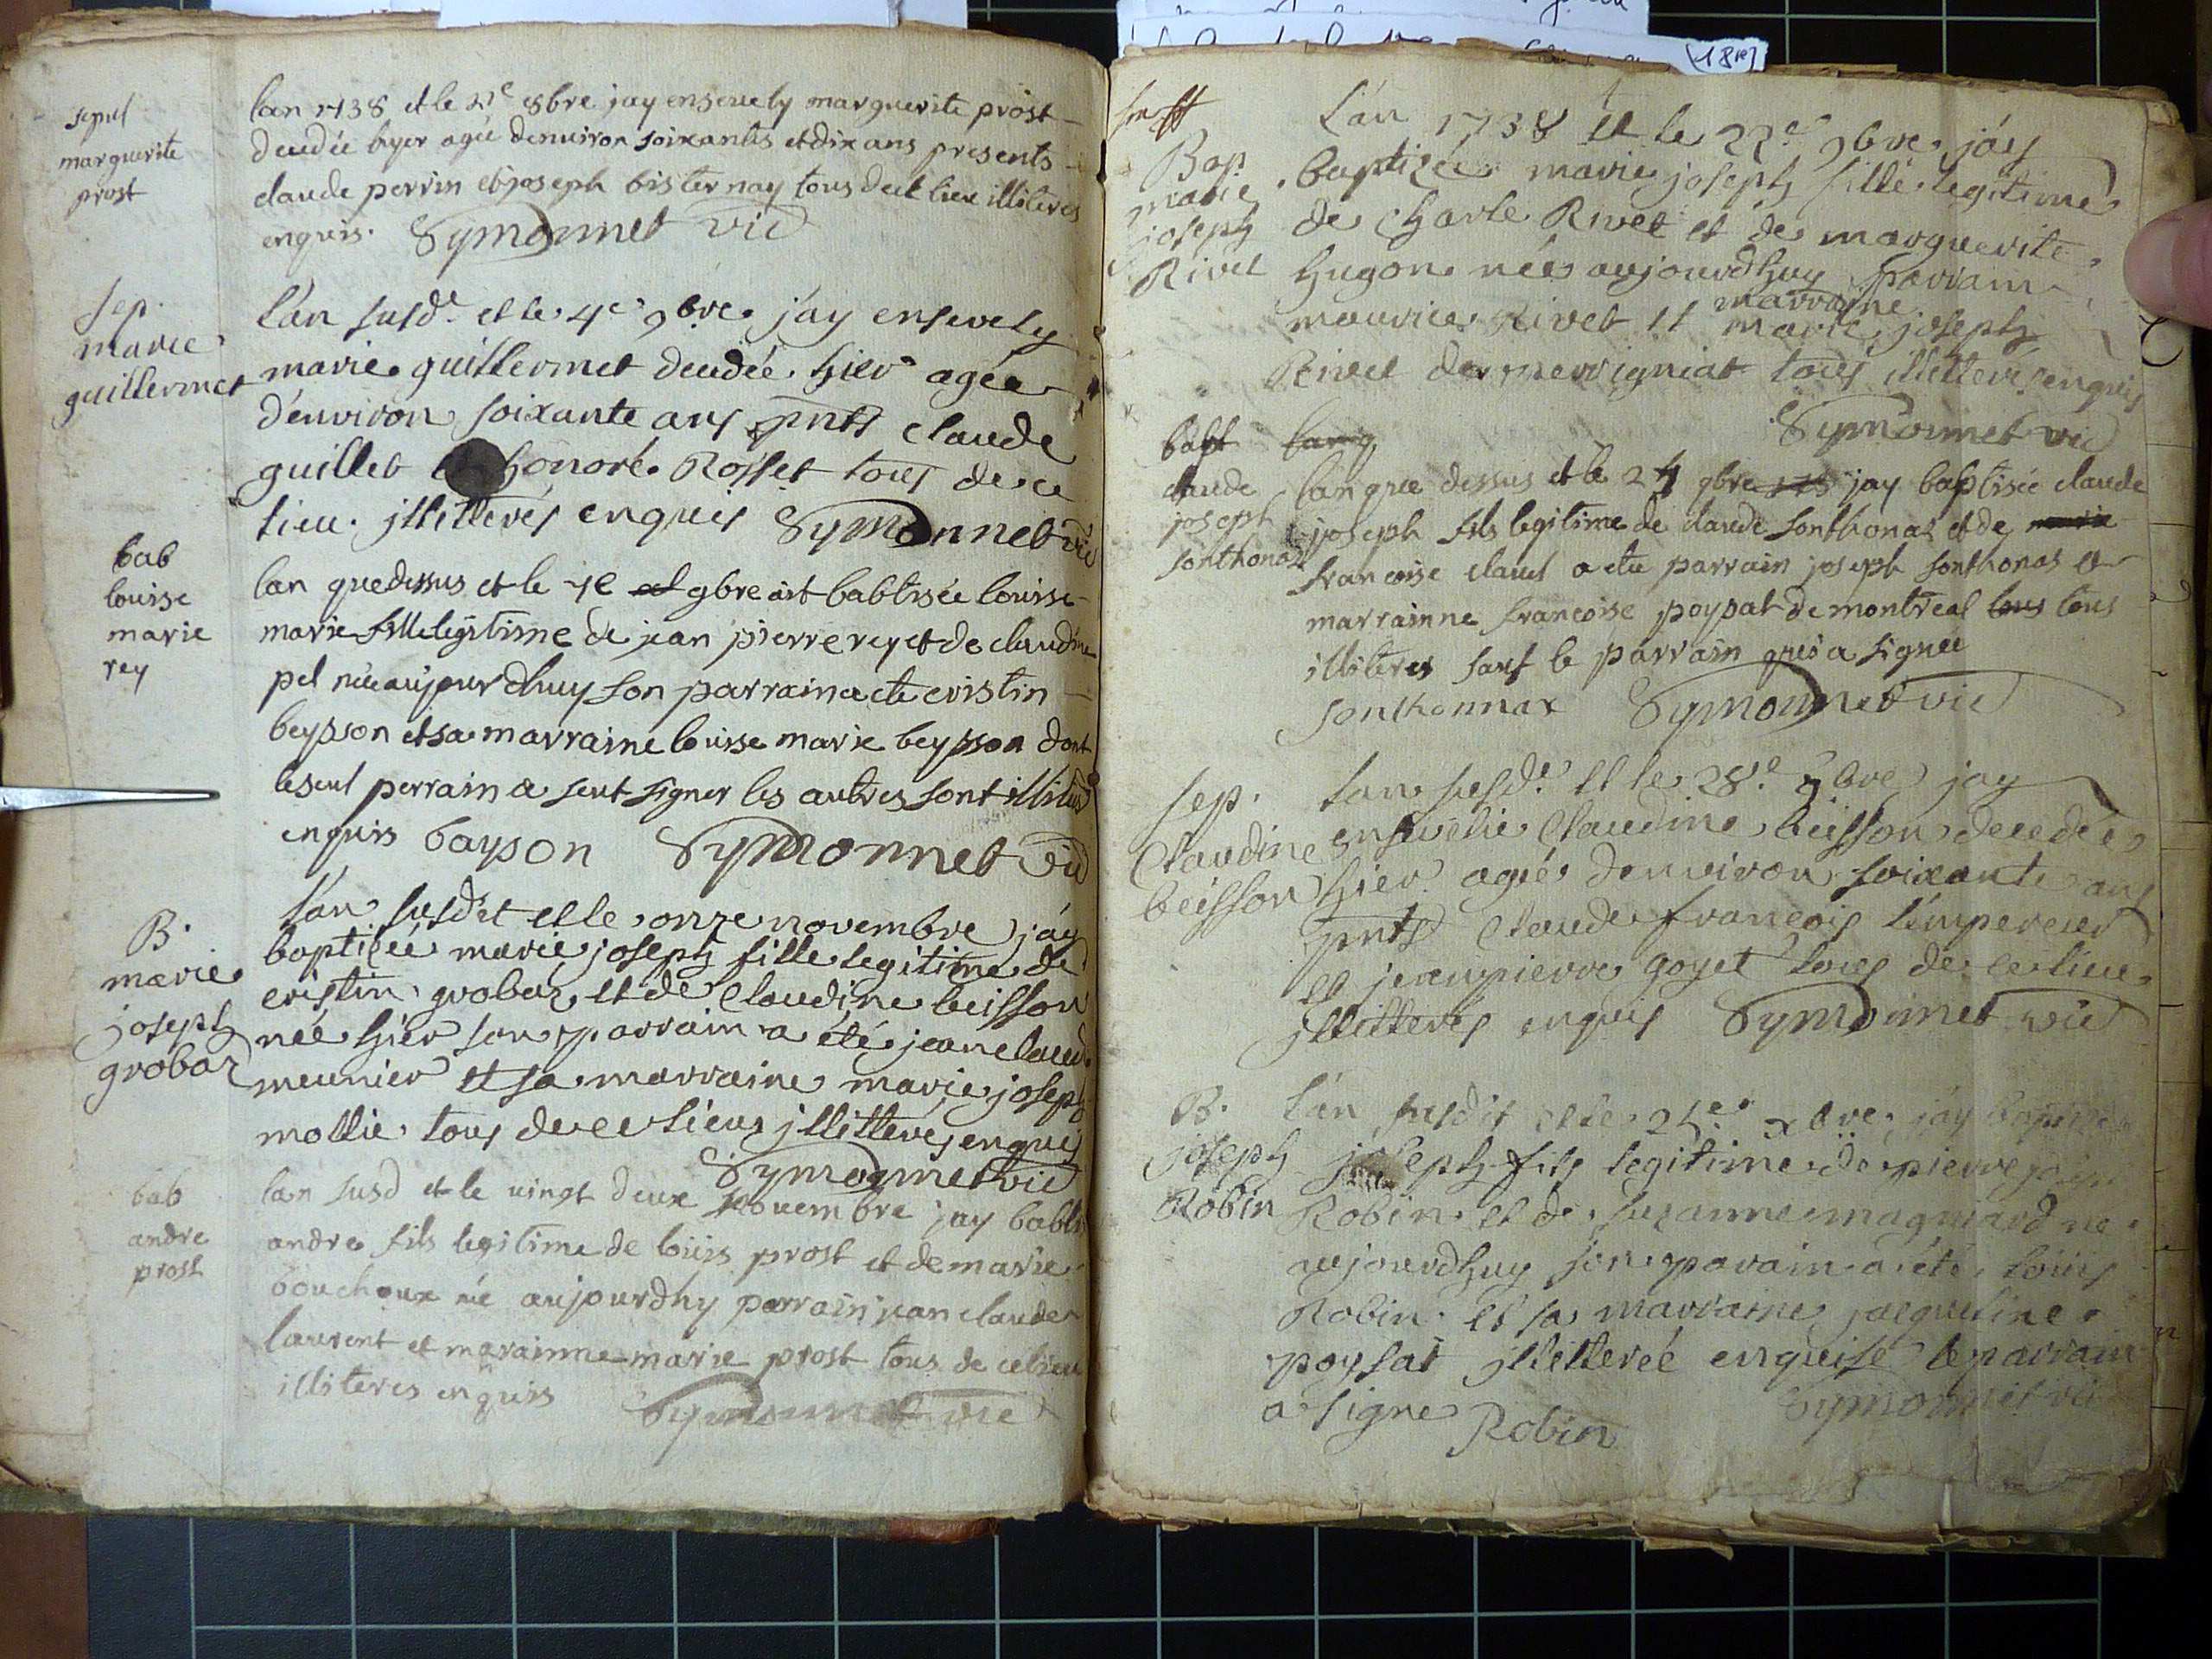 sepul
marguerite
prost
lan 1738 et le 21e 8bre jay enseuely marguerite prost
decedée hyer agée denuiron soixantes et dix ans presents
claude perrin et joseph bisternay tous du lieu illiteres
enquis. Symonnet vic
sep.
marie
guillermet
l'an susd. et le 4e 9bre j'ay ensevely
marie guillermet decedée hier agée
d'environ soixante ans pnts claude
guillet et honoré Rosset tous de ce
lieu illitterés enquis Symonnet vic
bab
louise
marie
rey
lan que dessus et le 9bre babtisée louise
marie fille legitime de jean pierre rey et de claudine
pel née aujourdhuy son parrain a ete cristin
beysson et sa marraine louise marie beysson dont
le seul perrain a seut signer les autres sont illiteres
enquis bayson Symonnet vic
B.
marie
joseph
grobaz
l'an susdet et le onze novembre j'ay
baptizée marie joseph fille legitime de
cristin grobaz et de Claudine beisson
née hier son parrain a été jean claude
meunier et sa marraine marie joseph
mollie tous de ce lieu jllitterés enquis
Symonnet vic
bab
andre
prost
lan susd et le uingt deux nouembre jay babti
andre fils legitime de louis prost et de marie
bouchoux né aujourdhy parrain jean claude
laurent et marainne marie prost tous de ce lieu
illiteres enquis Symonnet vic
18
Bap.
marie
joseph
Rivet
L'an 1738 et le 22e 9bre j'ay
baptizée marie joseph fille legitime
de Charle Rivet et de marguerite
hugon née aujourdhuy parrain
maurice Rivet et marraine marie joseph
Rivet de perrigniat tous illitterés enquis
Symonnet vic
bapt
claude
joseph
sonthonas
lan que dessus et le 24 9bre jay baptisée claude
joseph fils legitime de claude sonthonas et de marie
francoise claud a ete parrain joseph sonthonas et
marrainne francoise poypat de montreal tous tous
illiteres sauf le parrain qui a signee
sonthonnax Symonnet vic
sep.
Claudine
beisson
lan susd. et le 28e 9bre jay
ensevelie Claudine beisson decedée
hier agée denviron soixante ans
pnts Claude francois l'empereur
et jean pierre goyet tous de ce lieu
jllitterés enquis Symonnet vic
B.
joseph
Robin
l'an susdit et le 25e xbre j'ay baptizé
joseph fils legitime de pierre
Robin et de suzanne magniard né
aujourdhuy son parain a été louis
Robin et sa marraine jacqueline
poysat jllitterée enquise le parrain
a signe Robin Symonnet vic